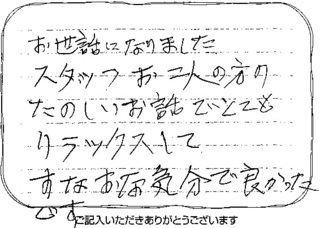 お世話になりました
スタッフお二人の方の
たのしいお話でとても
リラックスして
すなおな気分で良かった
です
ご記入いただきありがとうございます